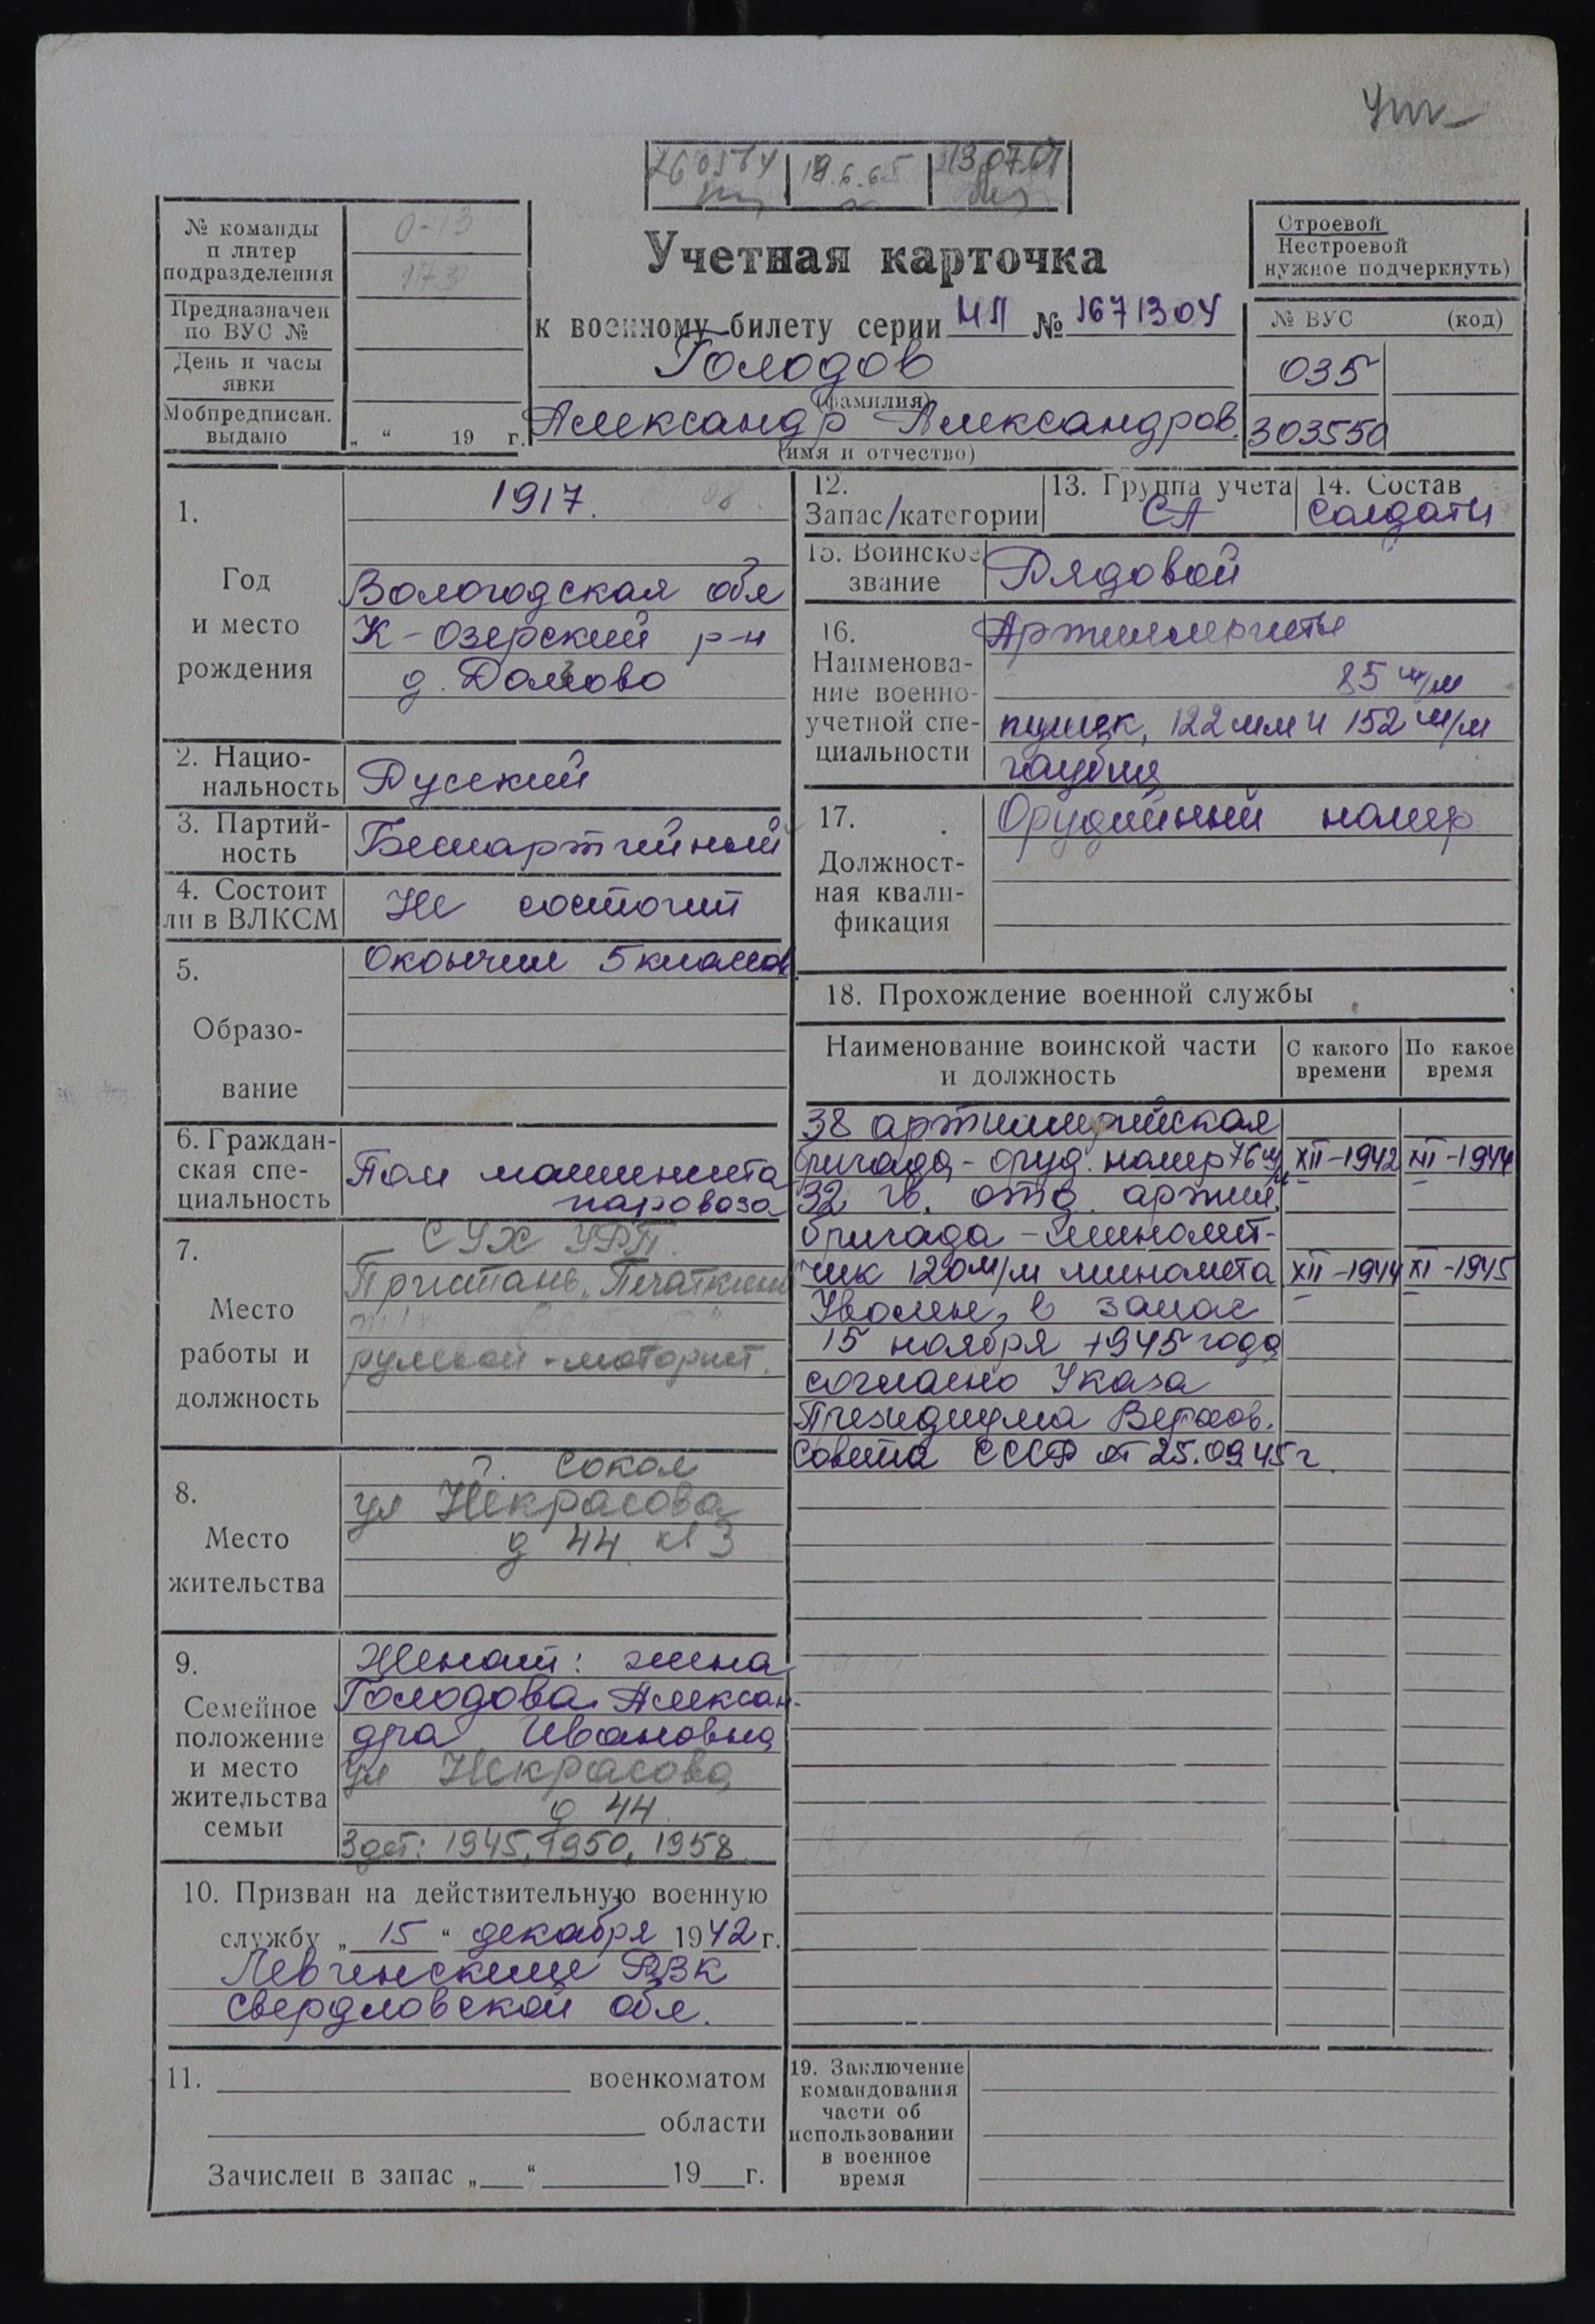 260564 19.6.65 130767
№ команды
п литер
подразделения
0-13
173
Предназначен
по ВУС №
День и часы
явки
Мобпредписан.
выдано
„ “ 19 г.
Учетная карточка
к военному билету серии НП № 1671304
Голодов
(фамилия)
Александр Александров.
(имя и отчество)
Строевой
Нестроевой
нужное подчеркнуть)
№ ВУС (код)
035
303550
1.
Год
и место
рождения
1917.
Вологодская обл
К-Озерский р-н
д.
2. Нацио-
нальность
Русский
3. Партий-
ность
Беспартийный
4. Состоит
ли в ВЛКСМ
Не состоит
5.
Образо-
вание
Окончил 5 классов
6. Граждан-
ская спе-
циальность
Пом машиниста
паровоза
7.
Место
работы и
должность
СУХ УРП.
Пристань „Печаткино
рулевой-моторист.
8.
Место
жительства
г. Сокол
ул Некрасова
д 44 кв 3
9.
Семейное
положение
и место
жительства
семьи
Женат: жена
Голодова Алексан-
дра Ивановна
ул Некрасова
д 44.
3 дет: 1945, 1950, 1958
10. Призван на действительную военную
службу „ 15 “ декабря 1942 г.
РВК
Свердловской обл.
11. военкоматом
области
Зачислен в запас „ “ 19 г.
12.
Запас/категории
13. Группа учета
СА
14. Состав
Солдаты
15. Воинское
звание
Рядовой
16.
Наименова-
ние военно-
учетной спе-
циальности
Артиллеристы
85 м/м
пушек, 122 мм и 152 м/м
гаубиц
17.
Должност-
ная квали-
фикация
Орудийный номер
18. Прохождение военной службы
Наименование воинской части
и должность
С какого
времени
По какое
время
38 артиллерийская
бригада - оруд. номер 76 м/м XII-1942 XII-1944
32 гв. отд. артил.
бригада - миномет-
чик 120 м/м миномета XII-1944 XI-1945
Уволен в запас
15 ноября 1945 года
согласно Указа
Президиума Верхов.
Совета СССР от 25.09.45 г.
19. Заключение
командования
части об
использовании
в военное
время